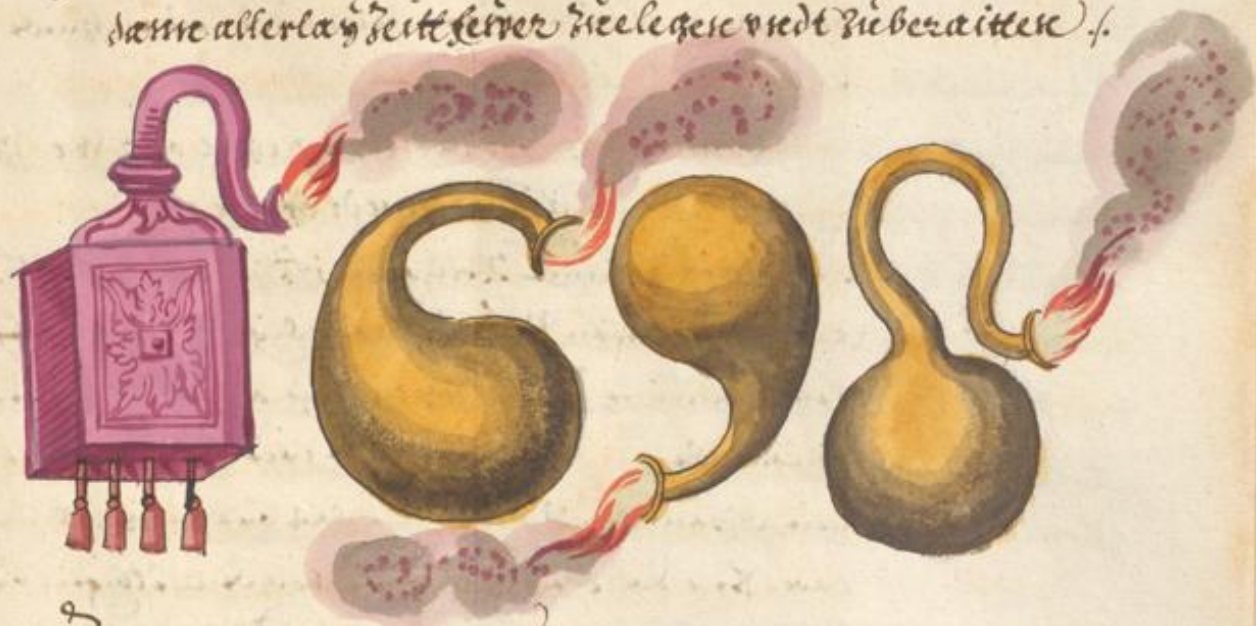 dann allerlaÿ Zeitt feüer Zue legen vndt Zuberaitten ./.